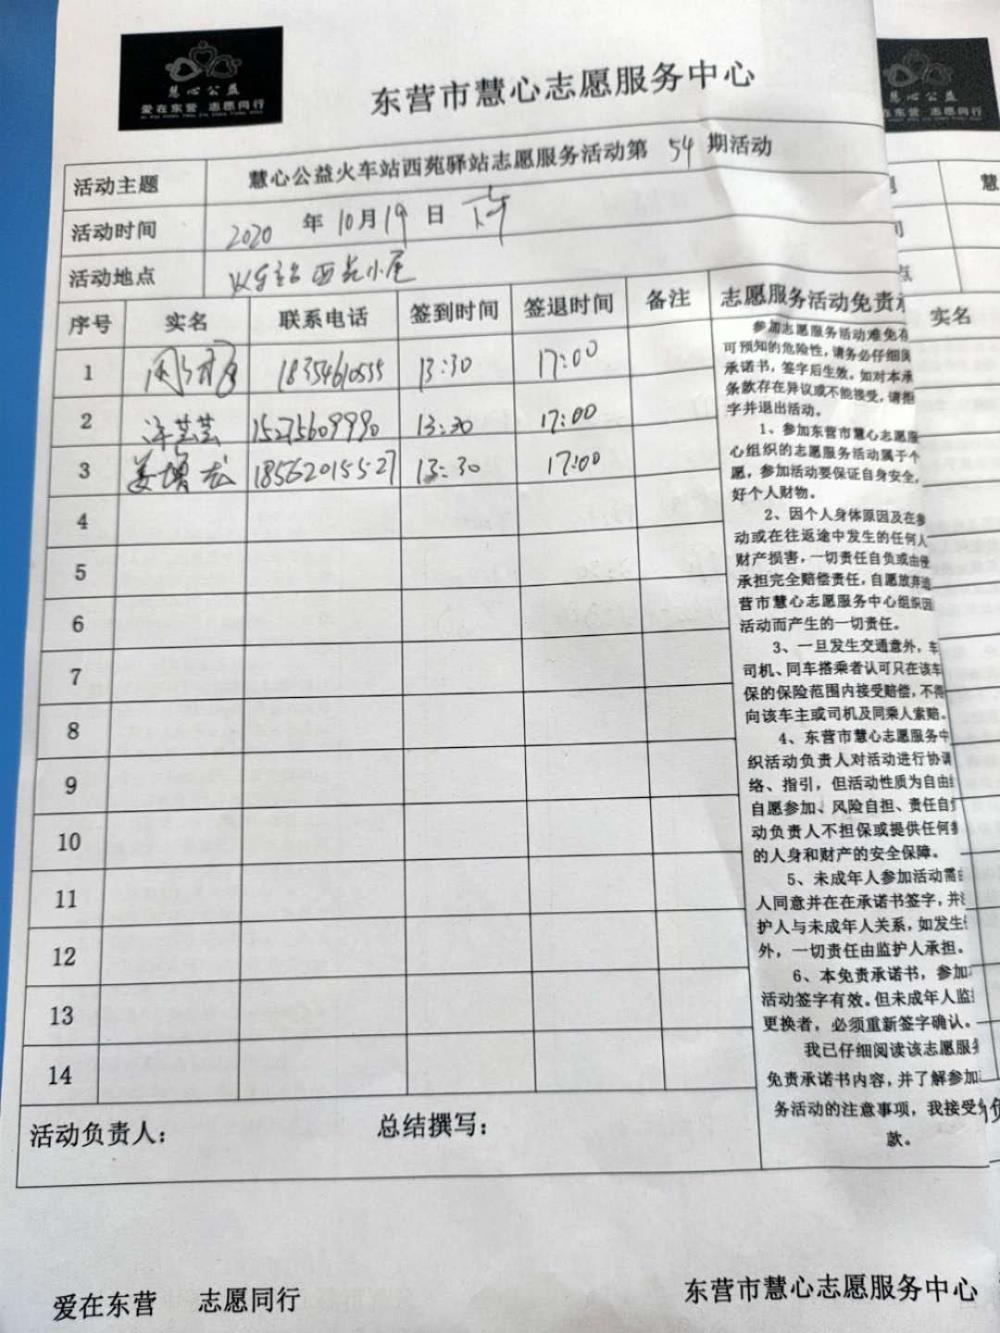 慧心公益
爱在东营 志愿同行
东营市慧心志愿服务中心
活动主题 慧心公益火车站西苑驿站志愿服务活动第 54 期活动
活动时间 2020 年 10月 19 日
活动地点 火车站西苑小屋
序号 实名 联系电话 签到时间 签退时间 备注 志愿服务活动免责
1 18354610555 13:30 17:00
2 15275609990 13:30 17:00
3 姜增龙 18562015527 13:30 17:00
4
5
6
7
8
9
10
11
12
13
14
参加志愿服务活动难免存
可预知的危险性，请务必仔细阅
承诺书，签字后生效。如对本承
条款存在异议或不能接受，请拒
字并退出活动。
1、参加东营市慧心志愿服
心组织的志愿服务活动属于个
愿，参加活动要保证自身安全，
好个人财物。
2、因个人身体原因及在参
动或在往返途中发生的任何人
财产损害，一切责任自负或由侵
承担完全赔偿责任，自愿放弃追
营市慧心志愿服务中心组织因
活动而产生的一切责任。
3、一旦发生交通意外，车
司机、同车搭乘者认可只在该车
保的保险范围内接受赔偿，不得
向该车主或司机及同乘人索赔。
4、东营市慧心志愿服务中
织活动负责人对活动进行协调
络、指引，但活动性质为自由
自愿参加、风险自担、责任自负
动负责人不担保或提供任何
的人身和财产的安全保障。
5、未成年人参加活动需
人同意并在在承诺书签字，并
护人与未成年人关系，如发生
外，一切责任由监护人承担。
6、本免责承诺书，参加
活动签字有效。但未成年人监
更换者，必须重新签字确认。
我已仔细阅读该志愿服务
免责承诺书内容，并了解参加
务活动的注意事项，我接受
款。
活动负责人： 总结撰写：
爱在东营 志愿同行 东营市慧心志愿服务中心
慧心公益
志愿同行
慧
点
实名